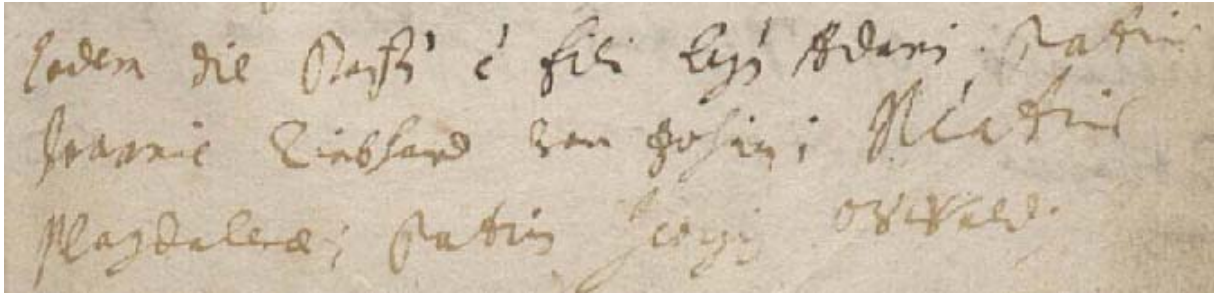 Eodem die Bapt' é fili Legi Adami . Patris
Joannis Liebhard von ; Matris
Magdalenæ ; Patrin Georgij Oswald .